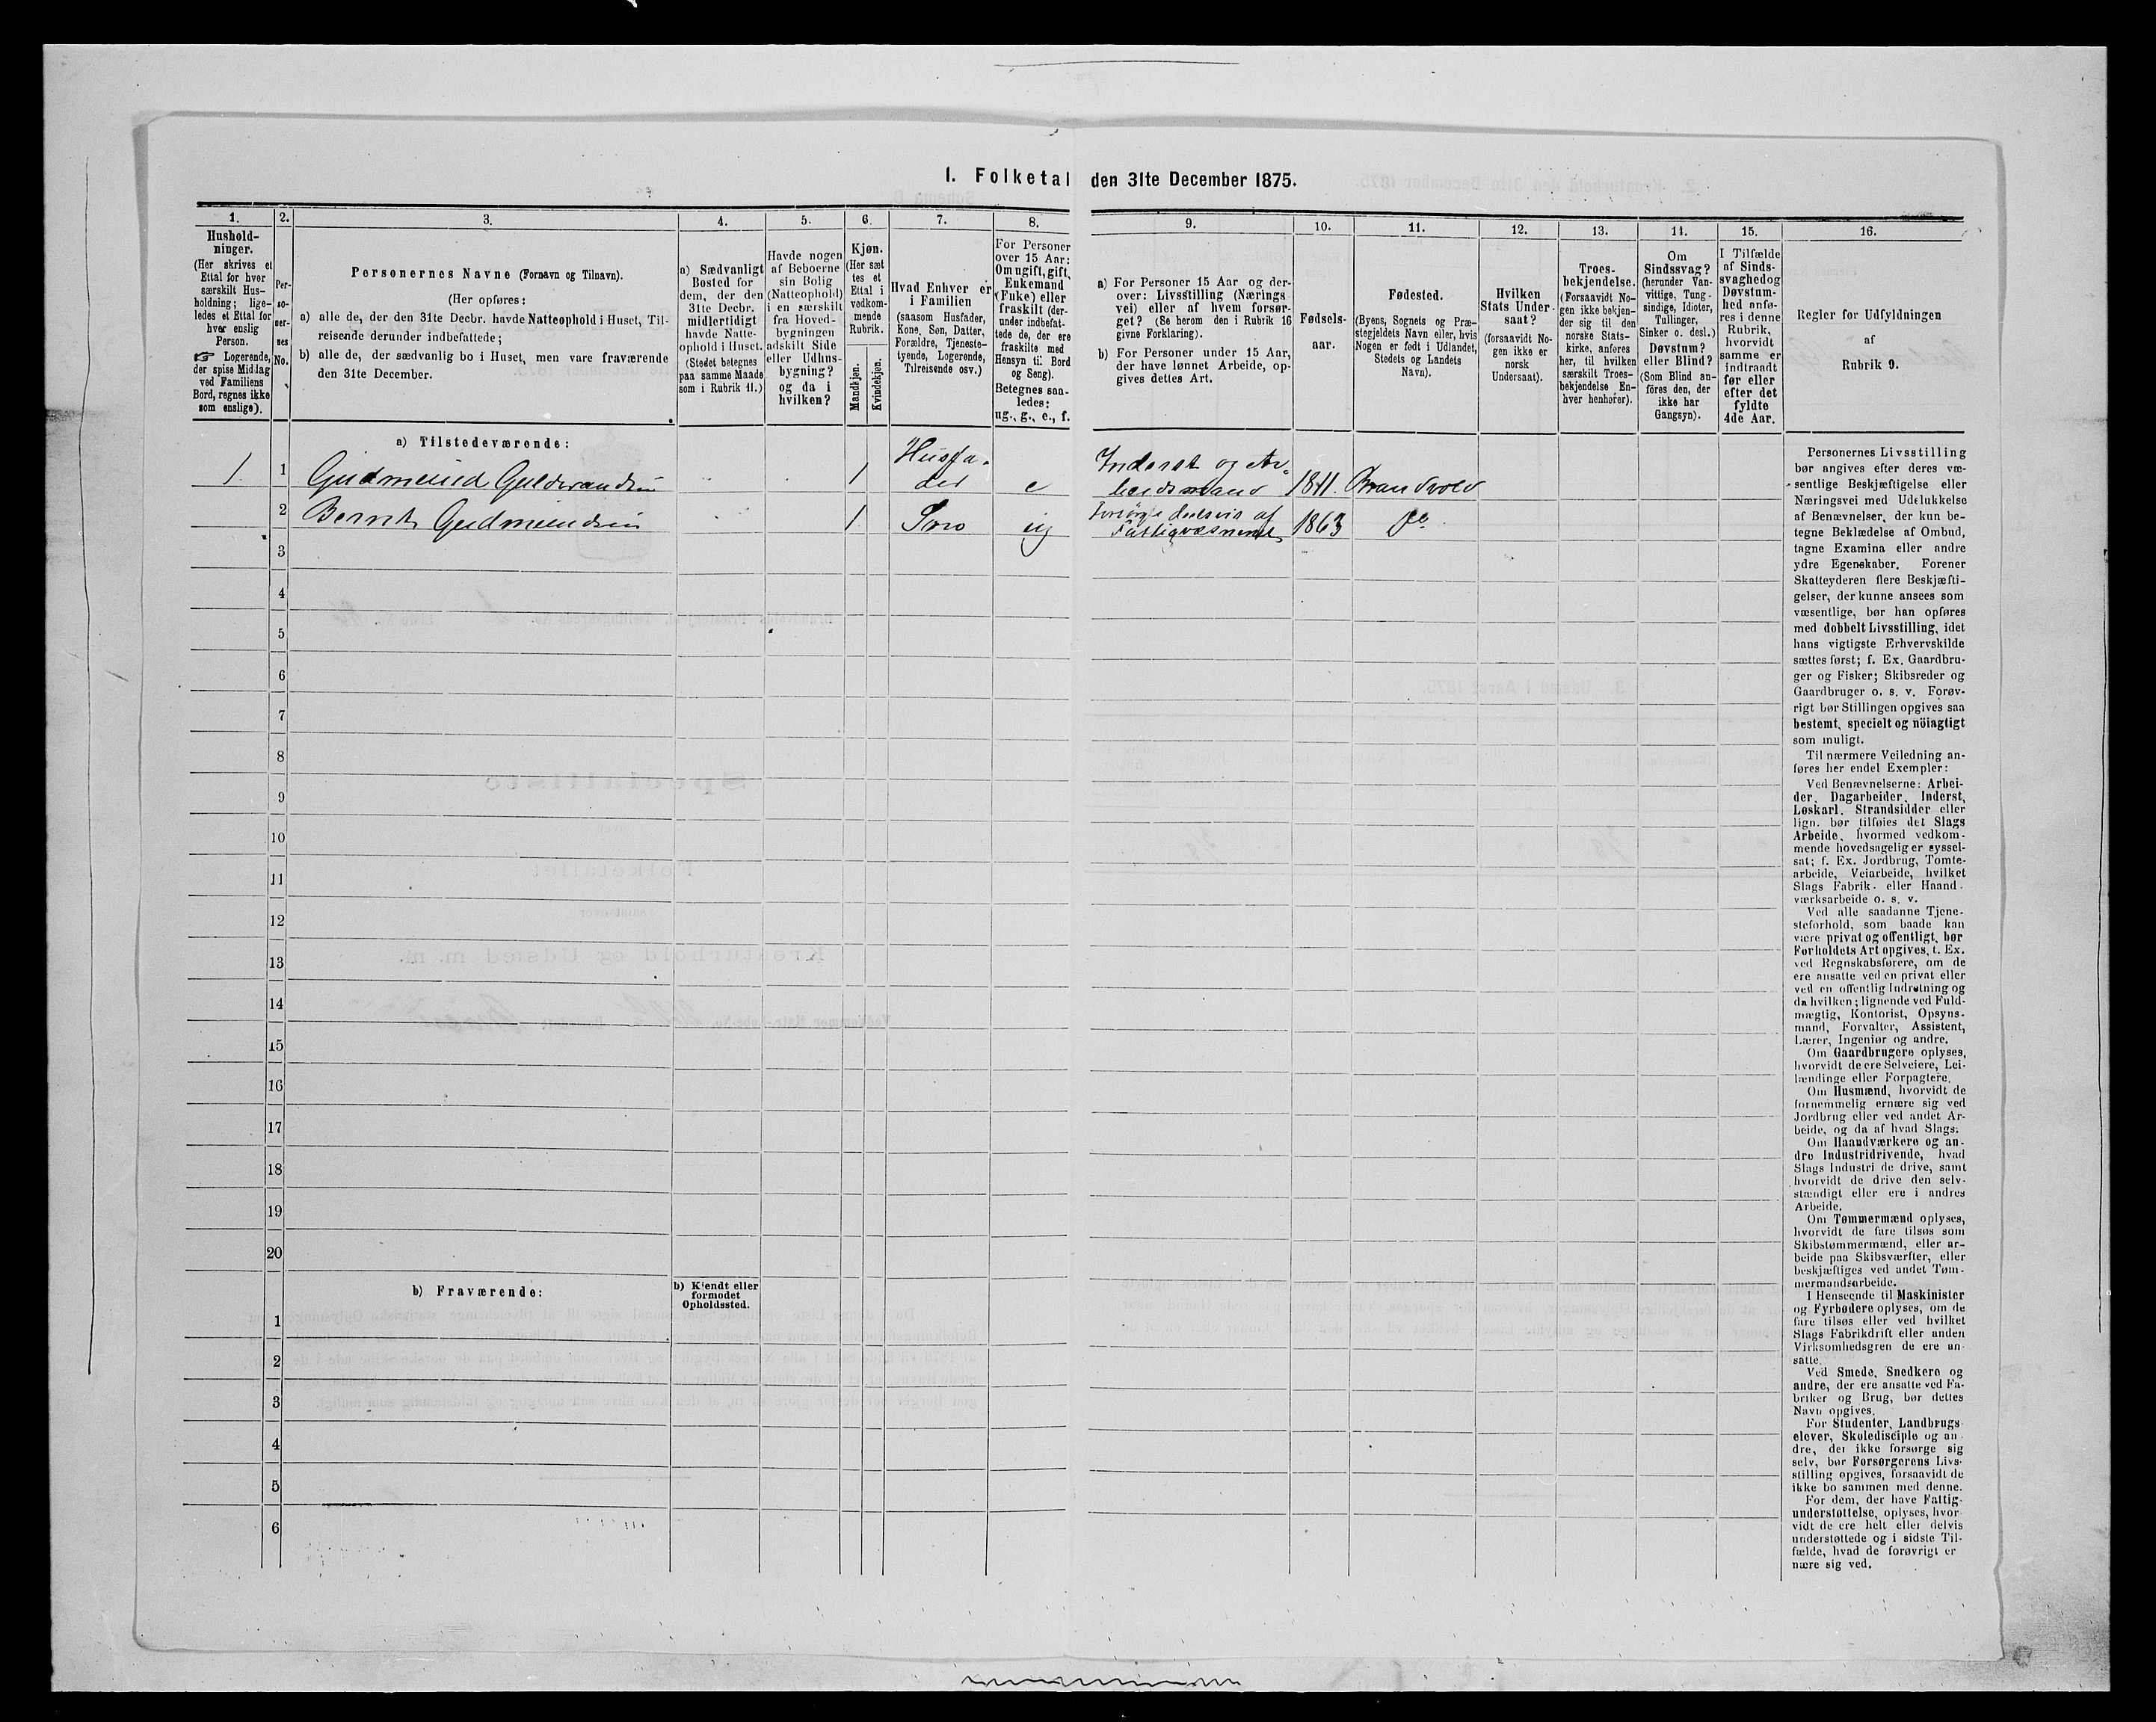 I. Folketal den 31te December 1875.
1.
2.
3.
4.
5.
6.
7.
8.
9.
10.
11.
12.
13.
14.
15.
16.
Hushold-
ninger.
(Her skrives et
Ettal for hver
særskilt Hus-
holdning; lige-
ledes et Ettal for
hver enslig
Person.
☞ Logerende,
der spise Middag
ved Familiens
Bord, regnes ikke
som enslige).
Per-
so-
ner-
nes
No.
Personernes Navne (Fornavn og Tilnavn).
(Her opføres:
a) alle de, der den 31te Decbr. havde Natteophold i Huset, Til-
reisende derunder indbefattede;
b) alle de, der sædvanlig bo i Huset, men vare fraværende
den 31te December.
a) Sædvanligt
Bosted for
dem, der den
31te Decbr.
midlertidigt
havde Natte-
ophold i Huset.
(Stedet betegnes
paa samme Maade
som i Rubrik 11.)
Havde nogen
af Beboerne
sin Bolig
(Natteophold)
i en særskilt
fra Hoved-
bygningen
adskilt Side
eller Udhus-
bygning?
og da i
hvilken?
Kjøn.
(Her sæt
tes et
Ettal i
vedkom-
mende
Rubrik.
Mandkjøn.
Kvindekjøn.
Hvad Enhver er
i Familien
(saasom Husfader,
Kone, Søn, Datter,
Forældre, Tjeneste-
tyende, Logerende,
Tilreisende osv.)
For Personer
over 15 Aar:
Om ugift, gift,
Enkemand
(Enke) eller
fraskilt (der-
under indbefat-
tede de, der ere
fraskilte med
Hensyn til Bord
og Seng).
Betegnes saa-
ledes:
ug., g., e., f.
a) For Personer 15 Aar og der-
over: Livsstilling (Nærings
vei) eller af hvem forsør-
get? (Se herom den i Rubrik 16
givne Forklaring).
b) For Personer under 15 Aar,
der have lønnet Arbeide, op-
gives dettes Art.
Fødsels-
aar.
Fødested.
(Byens, Sognets og Præ-
stegjeldets Navn eller, hvis
Nogen er født i Udlandet,
Stedets og Landets
Navn).
Hvilken
Stats Under-
saat?
(forsaavidt No-
gen ikke er
norsk
Undersaat).
Troes-
bekjendelse.
(Forsaavidt No-
gen ikke bekjen-
der sig til den
norske Stats-
kirke, anføres
her, til hvilken
særskilt Troes-
bekjendelse En-
hver henhører).
Om
Sindssvag?
(herunder Van-
vittige, Tung-
sindige, Idioter,
Tullinger,
Sinker o. desl.)
Døvstum?
eller Blind?
(Som Blind an-
føres den, der
ikke har
Gangsyn).
I Tilfælde
af Sinds-
svaghed og
Døvstum-
hed anfø-
res i denne
Rubrik,
hvorvidt
samme er
indtraadt
før eller
efter det
fyldte
4de Aar.
Regler for Udfyldningen
af
Rubrik 9.
a) Tilstedeværende:
1 1 Gudmund Guldbrandsen 1 Husfa-
der e Inderst og Ar-
beidsmand 1841. Brandvold
2 Bernt Gudmundsen 1 Søn ug Forsørges deelsvis af
Fattigvæsenet 1863 do
3
4
5
6
7
8
9
10
11
12
13
14
15
16
17
18
19
20
b) Fraværende:
b) Kjendt eller
formodet
Opholdssted.
1
2
3
4
5
6
Personernes Livsstilling
bør angives efter deres væ-
sentlige Beskjæftigelse eller
Næringsvei med Udelukkelse
af Benævnelser, der kun be-
tegne Beklædelse af Ombud,
tagne Examina eller andre
ydre Egenskaber. Forener
Skatteyderen flere Beskjæfti-
gelser, der kunne ansees som
væsentlige, bør han opføres
med dobbelt Livsstilling, idet
hans vigtigste Erhvervskilde
sættes først; f. Ex. Gaardbru-
ger og Fisker; Skibsreder og
Gaardbruger o. s. v. Forøv-
rigt bør Stillingen opgives saa
bestemt, specielt og nöiagtigt
som muligt.
Til nærmere Veiledning an-
føres her endel Exempler:
Ved Benævnelserne: Arbei-
der, Dagarbeider, Inderst,
Løskarl, Strandsidder eller
lign. bør tilføies det Slags
Arbeide, hvormed vedkom-
mende hovedsagelig er syssel-
sat; f. Ex. Jordbrug, Tomte-
arbeide, Veiarbeide, hvilket
Slags Fabrik- eller Haand-
værksarbeide o. s. v.
Ved alle saadanne Tjene-
steforhold, som baade kan
være privat og offentligt, bør
Forholdets Art opgives, t. Ex.
ved Regnskabsførere, om de
ere ansatte ved en privat eller
ved en offentlig Indretning og
da hvilken; lignende ved Fuld-
mægtig, Kontorist, Opsyns-
mand, Forvalter, Assistent,
Lærer, Ingeniør og andre.
Om Gaardbrugere oplyses,
hvorvidt de ere Selveiere, Lei-
lændinge eller Forpagtere.
Om Husmænd, hvorvidt de
fornemmelig ernære sig ved
Jordbrug eller ved andet Ar-
beide, og da af hvad Slags.
Om Haandværkere og an-
dre Industridrivende, hvad
Slags Industri de drive, samt
hvorvidt de drive den selv-
stændigt eller ere i andres
Arbeide.
Om Tømmermænd oplyses,
hvorvidt de fare tilsøs som
Skibstømmermænd, eller ar-
beide paa Skibsværfter, eller
beskjæftiges ved andet Tøm-
mermandsarbeide.
I Henseende til Maskinister
og Fyrbødere oplyses, om de
fare tilsøs eller ved hvilket
Slags Fabrikdrift eller anden
Virksomhedsgren de ere an
satte.
Ved Smede, Snedkere og
andre, der ere ansatte ved Fa-
briker og Brug, bør dettes
Navn opgives.
For Studenter, Landbrugs
elever, Skoledisciple og an
dre, der ikke forsørge sig
selv, bør Forsørgerens Livs-
stilling opgives, forsaavidt de
ikke bo sammen med denne.
For dem, der have Fattig-
understøttelse, oplyses, hvor-
vidt de ere helt eller delvis
understøttede og i sidste Til-
fælde, hvad de forøvrigt er
nære sig ved.